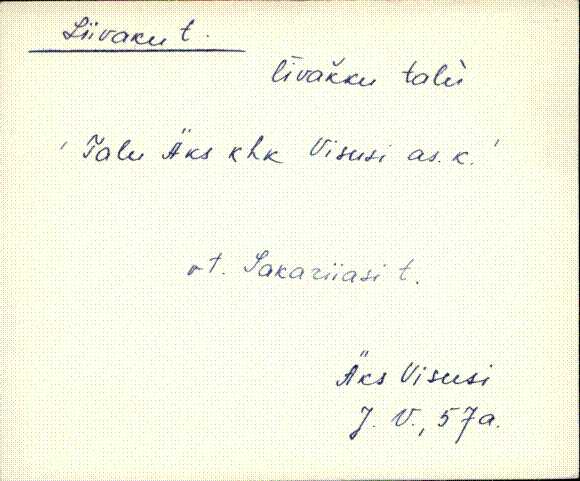 Liivaku t.
līvakku talù
' Talu Äks khk Visusi as. k. '
vt. Sakariiasi t.
Äks Visusi
J. V., 57a.